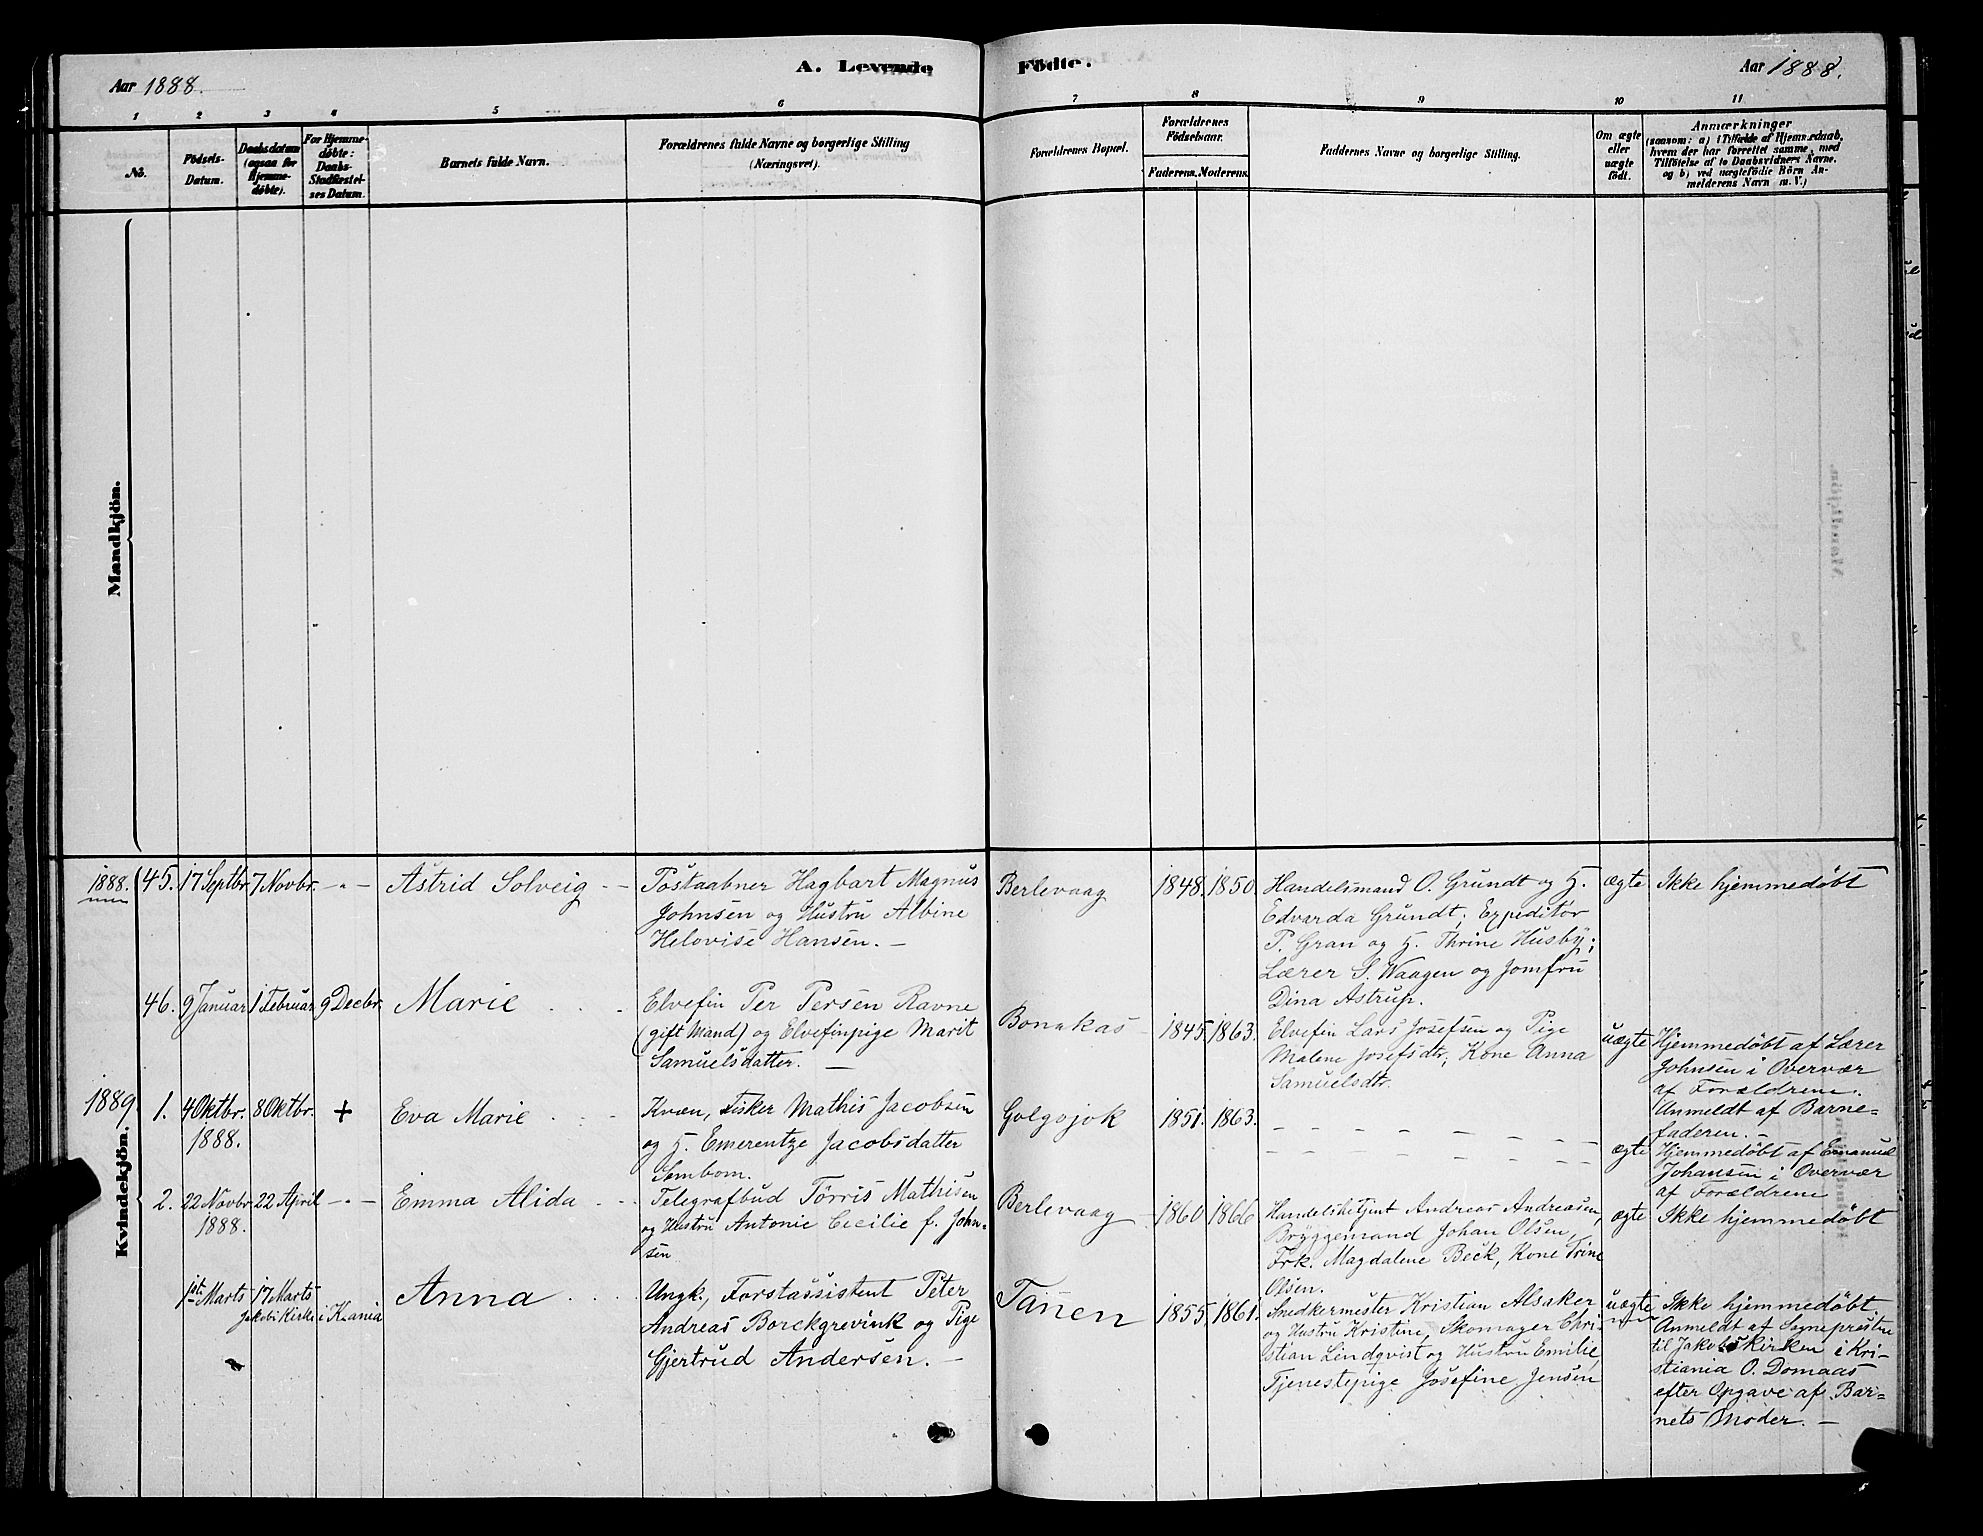 Aar 1888.
A. Levende
Födte.
Aar 1888.
1 2 3 4 5 6 7 8 9 10 11
No.
Födsels-
Datum.
Daabsdatum
(ogsaa for
Hjemme-
døbte).
For Hjemme-
døbte:
Daabs-
Stadfæstel-
ses Datum.
Barnets fulde Navn.
Forældrenes fulde Navne og borgerlige Stilling
(Næringsvei).
Forældrenes Bopæl.
Forældrenes
Födselsaar.
Faderens. Moderens.
Faddernes Navne og borgerlige Stilling.
Om ægte
eller
uægte
födt.
Anmærkninger
(saasom: a) i Tilfælde af Hjemmedaab,
hvem der har forrettet samme, med
Tilföielse af to Daabsvidners Navne.
og b) ved uægtefödte Börn An-
melderens Navn m. V.)
Mandkjön.
Kvindekjön.
1888.
45. 17 Septbr. 7 Novbr. - " -
Astrid Solveig - -
Postaabner Hagbart Magnus
Johnsen og Hustru Albine
Helovise Hansen. -
Berlevaag
1848. 1850.
Handelsmand O. Grundt og H.
Edvarda Grundt; Expeditør
P. Gran og H. Thrine Husby;
Lærer S. Waagen og Jomfru
Dina Astrup.
ægte
Ikke hjemmedøbt
46. 9 Januar 1 Februar 9 Decbr.
Marie
Elvefin Per Persen Ravne
(gift Mand) og Elvefinpige Marit
Samuelsdatter. -
Bonakas
1845. 1863.
Elvefin Lars Josefsen og Pige
Malene Josefsdtr, Kone Anna
Samuelsdtr.
uægte
Hjemmedøbt af Lærer
Johnsen i Overvær
af Forældrene.
Anmeldt af Barne-
faderen. -
1889
1. 4 Oktbr. 8 Oktbr. +
1888.
Eva Marie
Kvæn, Fisker Mathis Jacobsen
og H. Emerentze Jacobsdatter
Sombom.
Golgojok
1851. 1863.
- - - - - - -
- - - - - - -
ægte
Hjemmedøbt af Emanuel
Johansen i Overvær
af Forældrene
2. 22 Novbr. 22 April - " -
1888.
Emma Alida
Telegrafbud Törris Mathisen
og Hustru Antonie Cecilie f. John-
sen
Berlevaag
1860. 1866.
Handelsbetjent Andreas Andreasen,
Bryggemand Johan Olsen,
Frk. Magdalene Beck, Kone Trine
Olsen.
ægte
Ikke hjemmedøbt
1ste Marts 17 Marts
Jakobi Kirke i Krania
Anna
Ungk., Forstassistent Peter
Andreas Borckgrevink og Pige
Gjertrud Andersen. -
Tanen
1855. 1861.
Snedkermester Kristian Alsaker
og Hustru Kristine, Skomager Chri-
stian Lindqvist og Hustru Emilie,
Tjenestepige Josefine Jensen
uægte
Ikke hjemmedøbt.
Anmeldt af Sognepresten
til Jakobskirken i Kri-
stiania O. Domaas
efter Opgave af Bar-
nets Moder. -